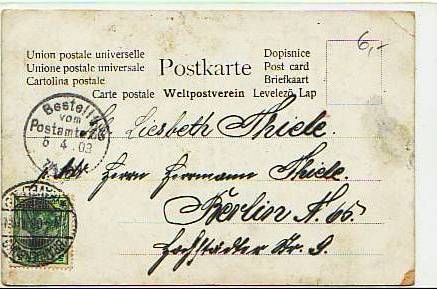 6,-
Union postale universelle
Unione postale universale
Cartolina postale
Postkarte
Dopisnice
Post card
Briefkaart
Carte postale Weltpostverein Levelező Lap
Bestellt
vom
Postamte
6 4 03
Liesbeth Thiele.
Herrn Herrmann Thiele.
Berlin N. 65.
Str. 9.